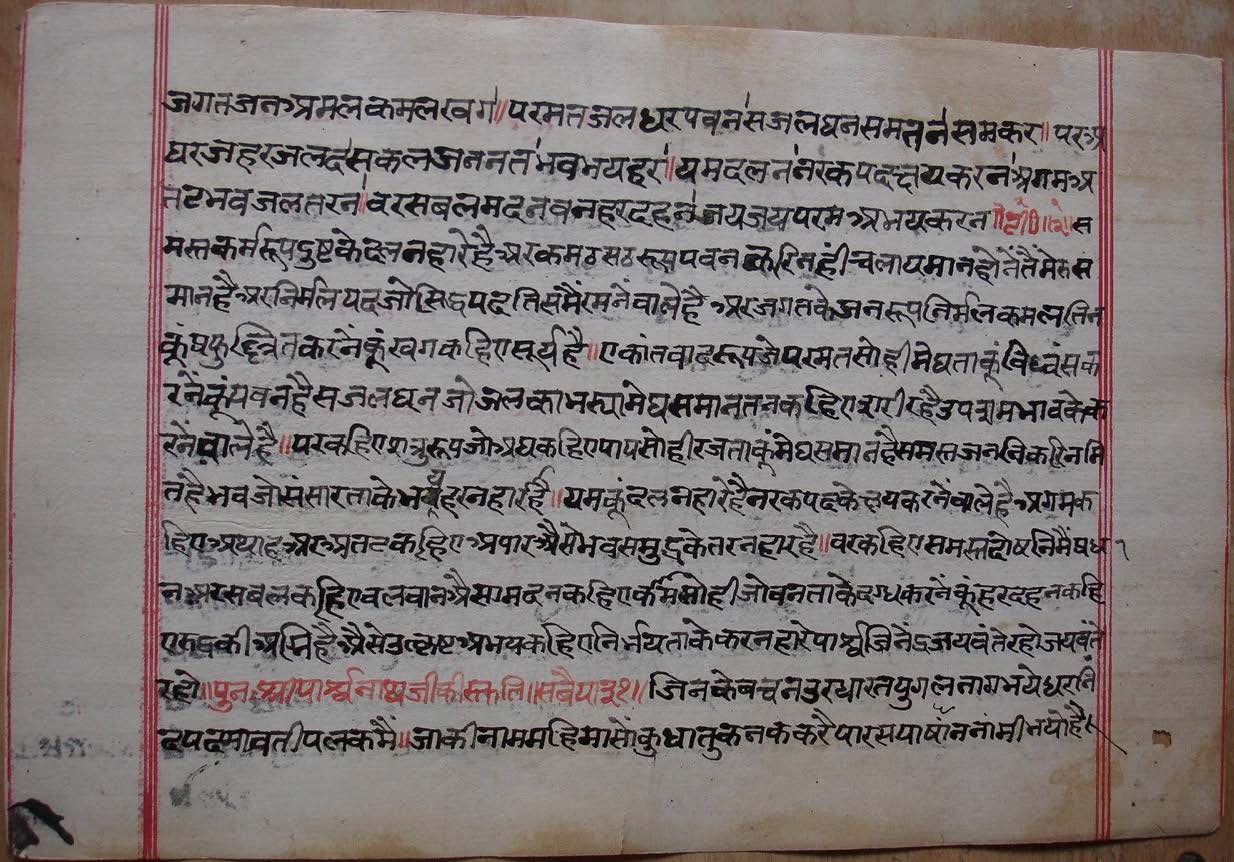 जगतजनअमलकमलखग॥परमतजलधरपवनंसजलघनसमतनंसमकर॥परअ
घरजहरजलदंसकलजननतंभवभयहरं॥यमदलनंनरकपदक्षयकरनंअगमअ
तटभवजलतरनं॥वरसबलमदनवनहरदहनंजयजयपरमअभयकरन॥टीका॥२॥स
मस्तकर्मरूपदुष्टकेदलनहारेहैअरकमठसठरूपपवनकरिनहींचलायमानहोनेंतैंमेरुस
मानहैअरनिर्मलपदजोसिद्धपदतिसमैंरमनेंवालेहैअरजगतकेजनरूपनिर्मलकमलतिन
कूंप्रफुल्लितकरनेंकूंखगकहिएसूर्यहै॥एकांतवादरूपजेपरमतसोहीमेघताकूंविध्वंसक
रनेंकूंपवनहैसजलघनजोजलकाभर्यामेघसमानतनकहिएशरीरहैउपशमभावकेक
रनेंवालेहै॥परकहिएशत्रुरूपजोअघकहिएपापसोहीरजताकूंमेघसमानहैसमस्तजननिकरिनमि
तहैभवजोसंसारताकेभयहरनहारहै॥यमकूंदलनहारेहैनरकपदकेक्षयकरनेंवालेहैअगमक
हिएअथाहअरुअतटकहिएअपारअैसेभवसमुद्रकेतरनहारहै॥वरकहिएसमस्तदोषनिमैंप्रधा
नअरसबलकहिएबलवानअैसामदनकहिएकर्मसोहीजोवनताकेदग्धकरनेंकूंहरदहनकहि
एरुद्रकीअग्निहैअैसेउत्कृष्टअभयकहिएनिर्भयताकेकरनहारेपार्श्वजिनेंद्रजयवंतेरहोजयवंते
रहो॥पुनःश्रीपार्श्वनाथजीकीस्तुति॥सवैया३१॥जिनकेवचनउरधारतयुगलनागभयेधरनिं
दपदमावतीपलकमैं॥जाकीनाममहिमासोंकुधातुकनककरैपारसपाषांननांमीभयोहै